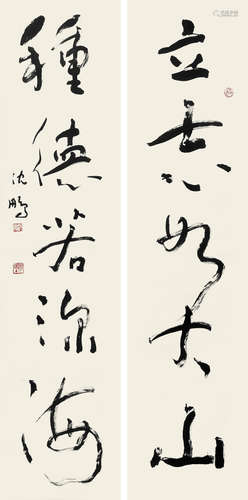 立志如大山
種德若深海
沈鵬